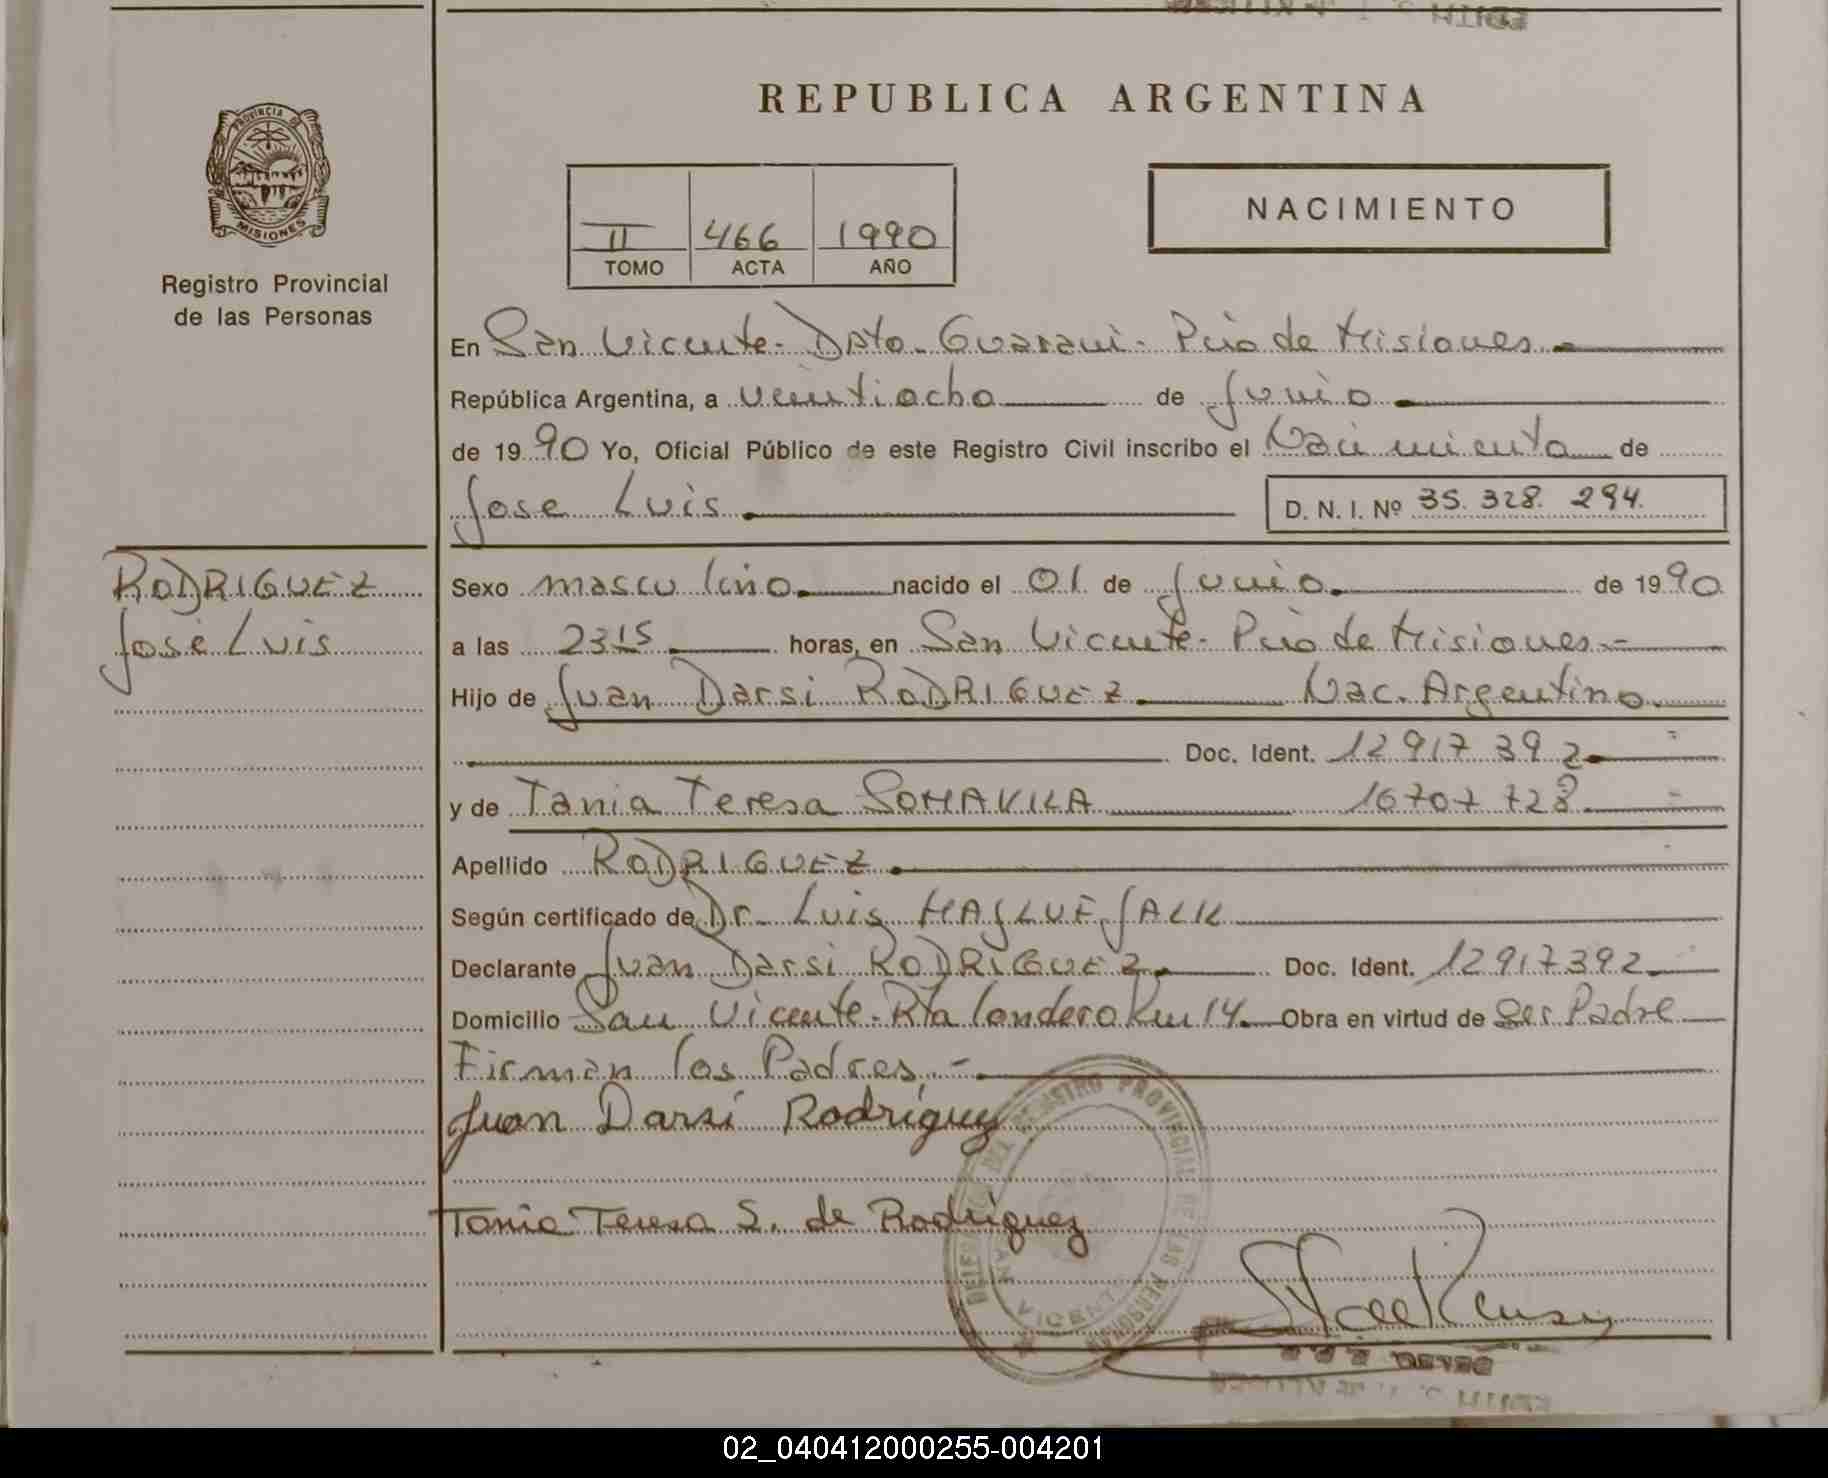 REPUBLICA ARGENTINA
PROVINCIA DE
MISIONES
Registro Provincial
de las Personas
II 466 1990
TOMO ACTA AÑO
NACIMIENTO
En San Vicente - Dpto. Guarani - Pcia de Misiones
República Argentina, a veintiocho de Junio
de 1990 Yo, Oficial Público de este Registro Civil inscribo el Nacimiento de
Jose Luis D. N. I. Nº 35.328.294.
RODRIGUEZ
José Luis
Sexo masculino nacido el 01 de Junio de 1990
a las 2315 horas, en San Vicente - Pcia de Misiones -
Hijo de Juan Darsi RODRIGUEZ Nac. Argentino
Doc. Ident. 12917392
y de Tania Teresa SOMAVILA 16707728
Apellido RODRIGUEZ
Según certificado de Dr. Luis
Declarante Juan Darsi RODRIGUEZ Doc. Ident. 12917392
Domicilio San Vicente - Rta Londero Km 14 Obra en virtud de Ser Padre
Firman los Padres, -
Juan Darsi Rodriguez
Tania Teresa S. de Rodriguez
DEL REGISTRO PROVINCIAL DE LAS PERSONAS
VICENTE
02_040412000255-004201